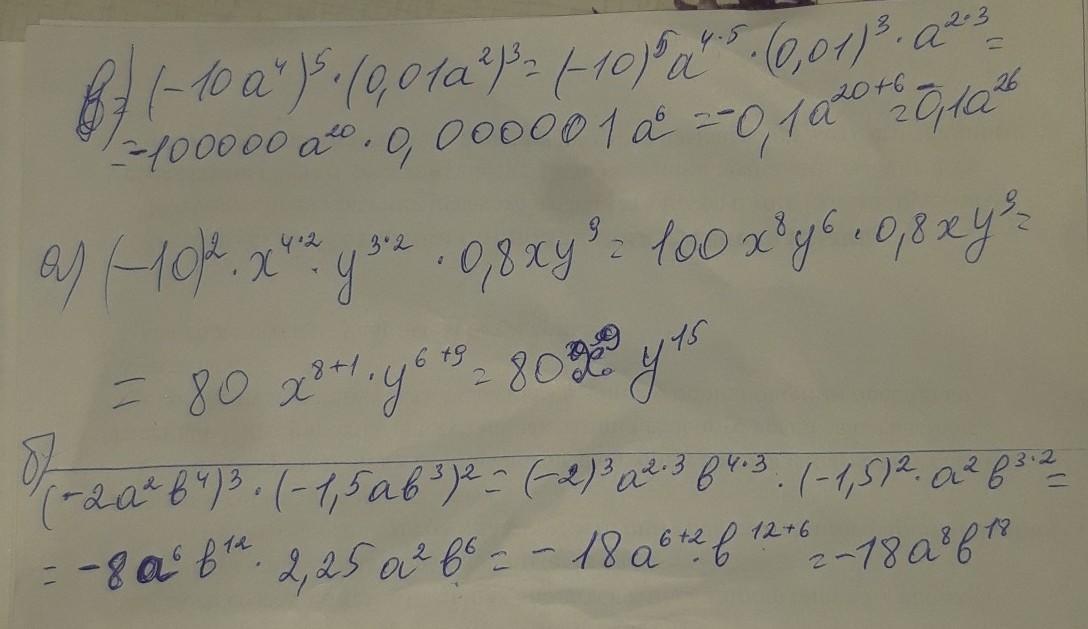 в) (-10a⁴)⁵·(0,01a²)³=(-10)⁵a⁴·⁵·(0,01)³·a²·³=
=-100000a²⁰·0,000001a⁶=-0,1a²⁰⁺⁶=-0,1a²⁶
а) (-10)²·x⁴·²·y³·²·0,8xy⁹=100x⁸y⁶·0,8xy⁹=
= 80 x⁸⁺¹·y⁶⁺⁹=80x⁹y¹⁵
б)
(-2a²b⁴)³·(-1,5ab³)²=(-2)³a²·³b⁴·³·(-1,5)²·a²b³·²=
=-8a⁶b¹²·2,25a²b⁶=-18a⁶⁺²·b¹²⁺⁶=-18a⁸b¹⁸